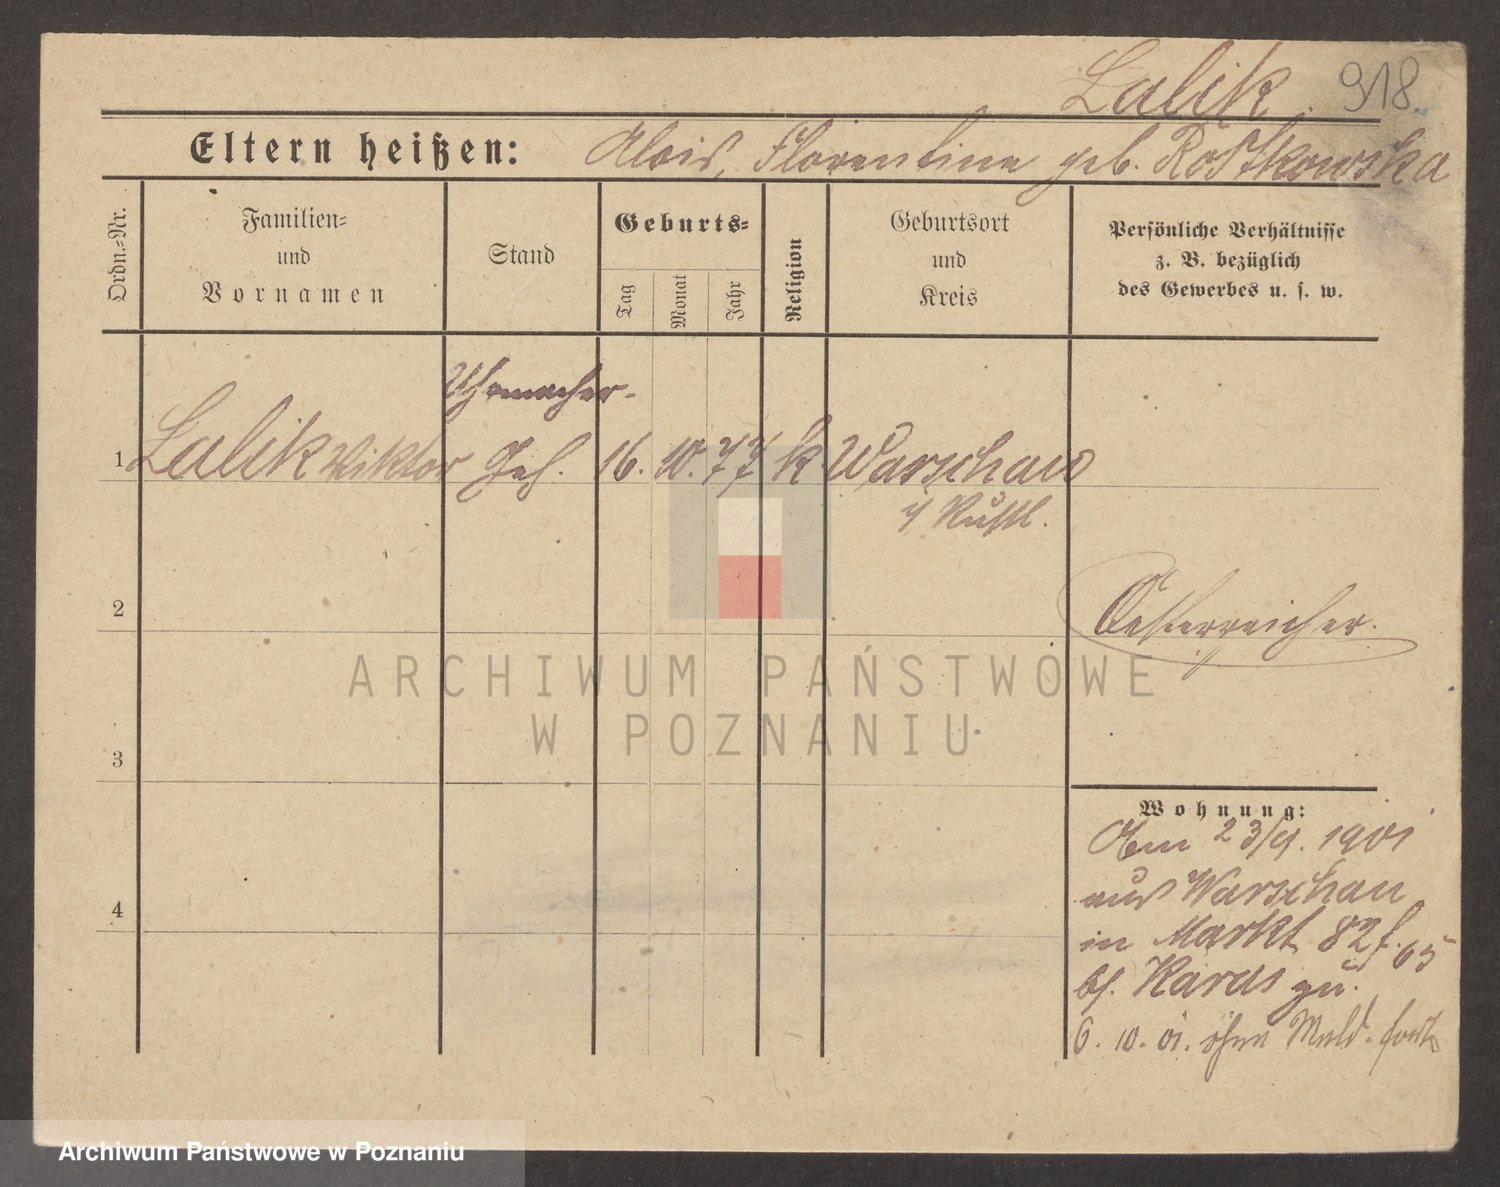 Lalik. 918.
Eltern heißen: Alois, Florentine geb. Rostkowska
Ordn.=Nr.
Familien=
und
Vornamen
Stand
Geburts=
Tag
Monat
Jahr
Religion
Geburtsort
und
Kreis
Persönliche Verhältnisse
z. B. bezüglich
des Gewerbes u. s. w.
Uhrmacher-
1 Lalik Viktor Geh. 16. 10. 77 k Warschau
i/ Rußl.
2
Oesterreicher.
3
4
Wohnung:
Am 23/9. 1901
aus Warschau
in Markt 82 f. 65
bf. Karas zu.
6. 10. 01. ohne Meld. fort
ARCHIWUM PAŃSTWOWE
W POZNANIU
Archiwum Państwowe w Poznaniu